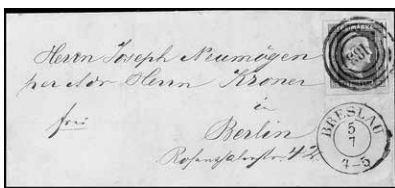 Herrn Joseph Neumögen
per Adr Herrn Kroner
in
frei
Berlin
Rosenthalerstr. 42.
BRESLAU
5
7
4-5